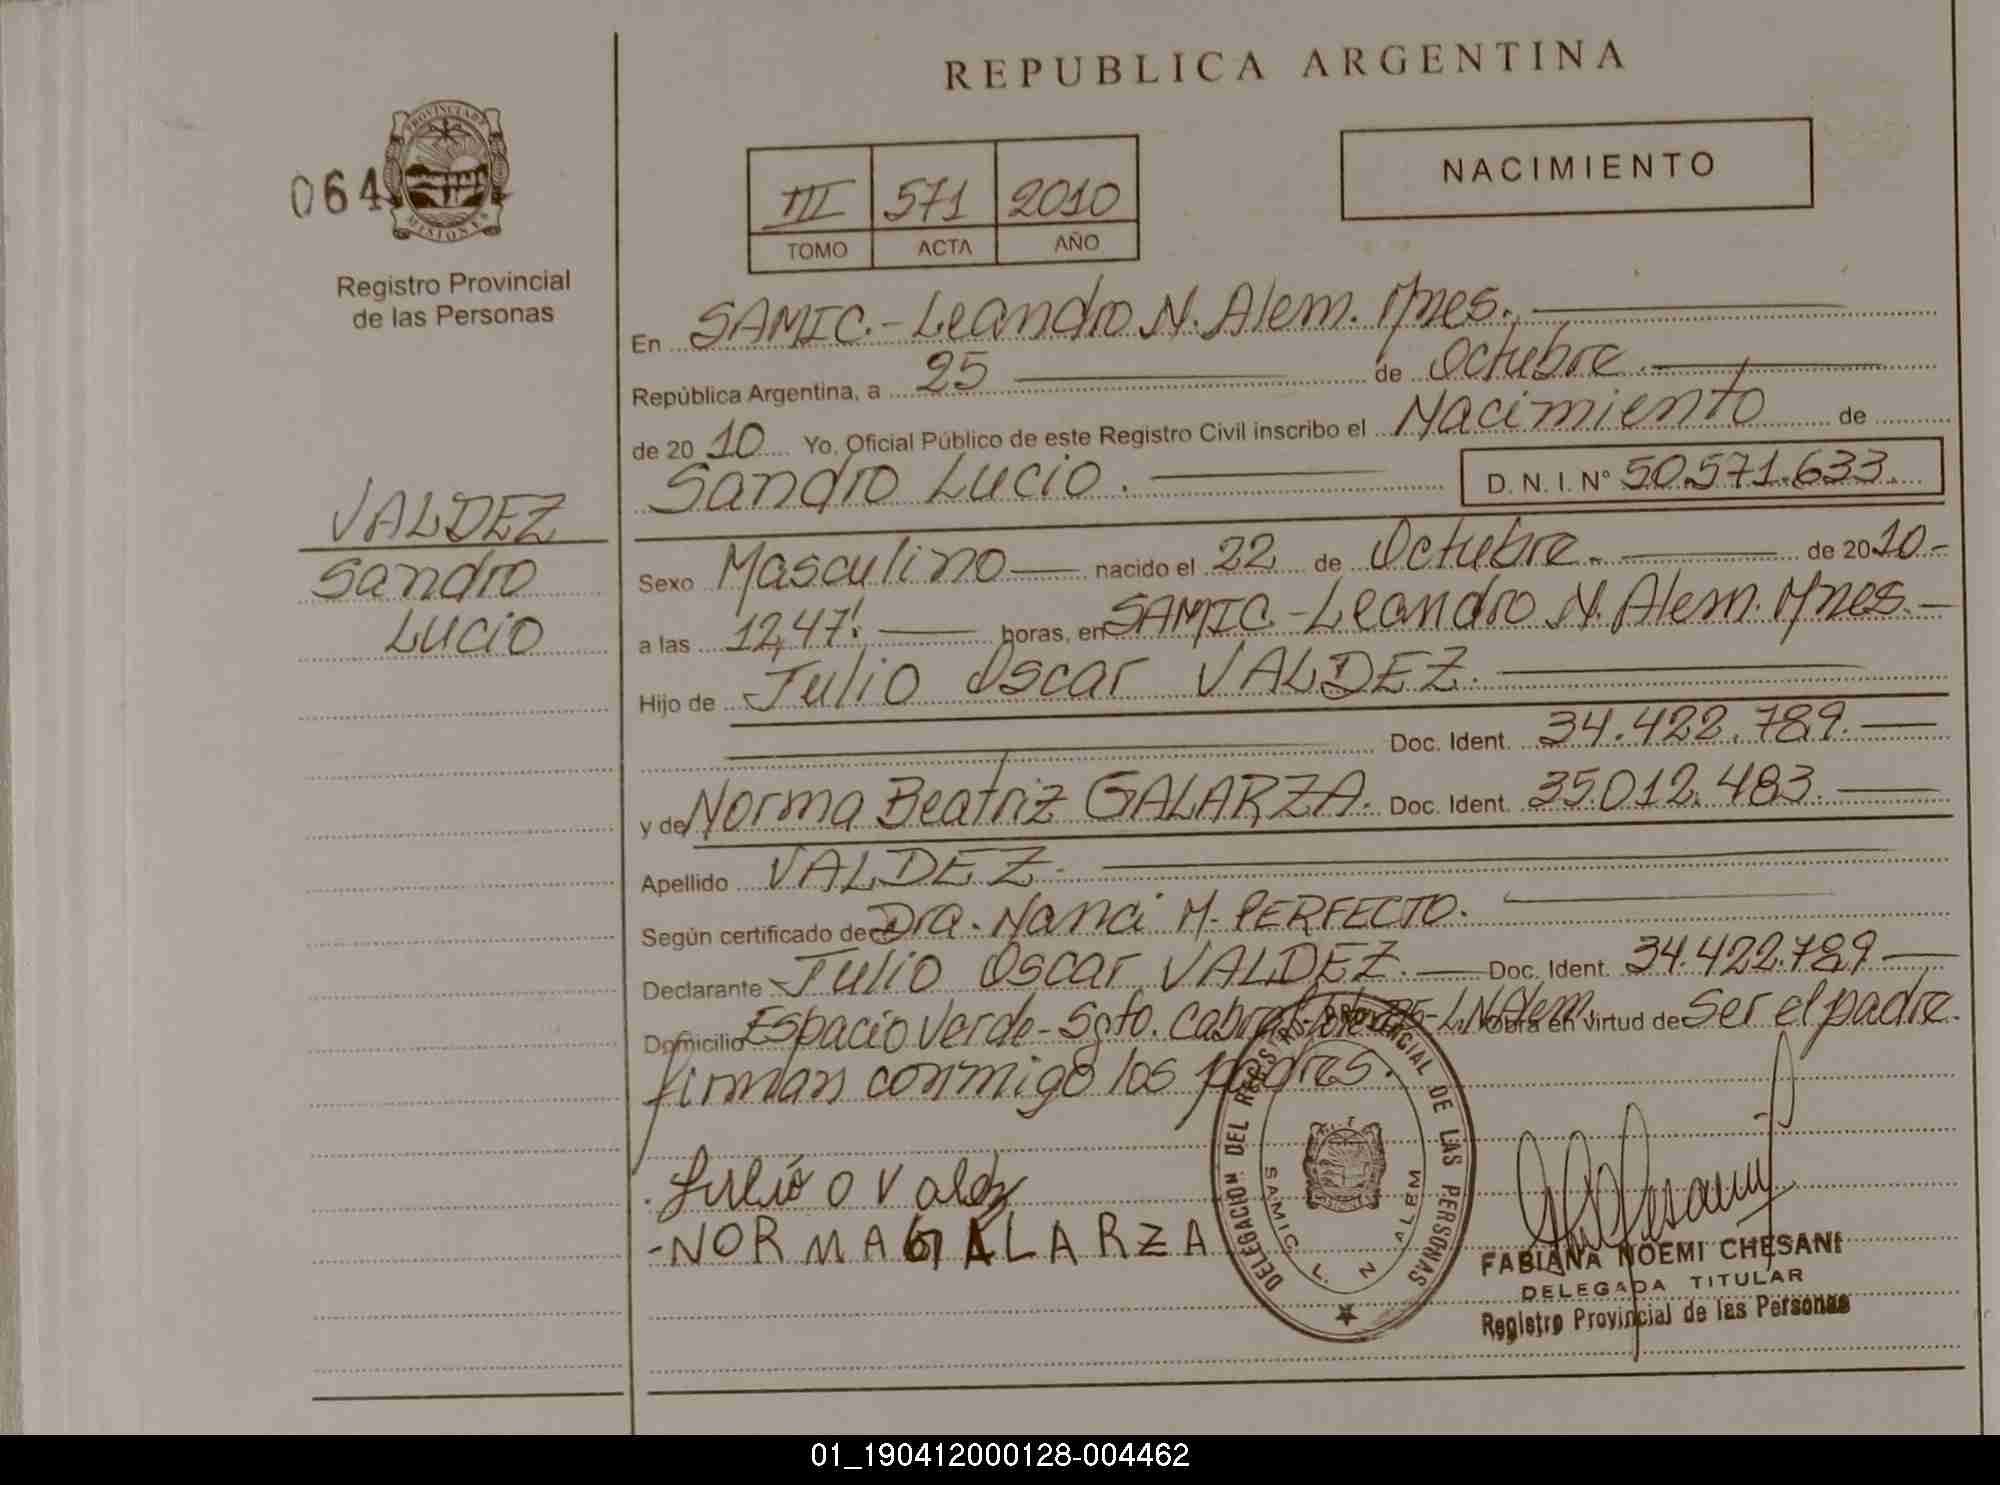 REPUBLICA ARGENTINA
NACIMIENTO
064
PROVINCIA DE MISIONES
Registro Provincial
de las Personas
III 571 2010
TOMO ACTA AÑO
En SAMIC.- Leandro N. Alem. Mnes.
República Argentina, a 25 de Octubre.
de 20 10 Yo, Oficial Público de este Registro Civil inscribo el Nacimiento de
Sandro Lucio. D. N. I. Nº 50.571.633.
VALDEZ
Sandro
Lucio
Sexo Masculino nacido el 22 de Octubre.- de 20 10.-
a las 12,47'. horas, en SAMIC.- Leandro N. Alem. Mnes.-
Hijo de Julio Oscar VALDEZ.
Doc. Ident. 34.422.789.
y de Norma Beatriz GALARZA. Doc. Ident. 35.012.483.
Apellido VALDEZ.
Según certificado de Dra. Nanci M. PERFECTO.
Declarante Julio Oscar VALDEZ. Doc. Ident. 34.422.789
Domicilio Espacio Verde- Sgto. Cabral L.N.Alem. Obra en virtud de Ser el padre.
firman conmigo los padres.
Julio O Valdez
-NORMA GALARZA
DELEGACION DEL REGISTRO PROVINCIAL DE LAS PERSONAS
SAMIC L. N ALEM
FABIANA NOEMI CHESANI
DELEGADA TITULAR
Registro Provincial de las Personas
01_190412000128-004462